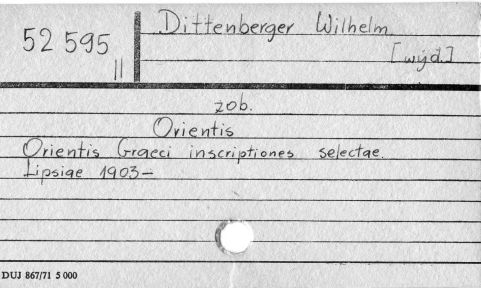 52 595
II
Dittenberger Wilhelm.
[wyd.]
zob.
Orientis
Orientis Graeci inscriptiones selectae.
Lipsiae 1903—
DUJ 867/71 5 000